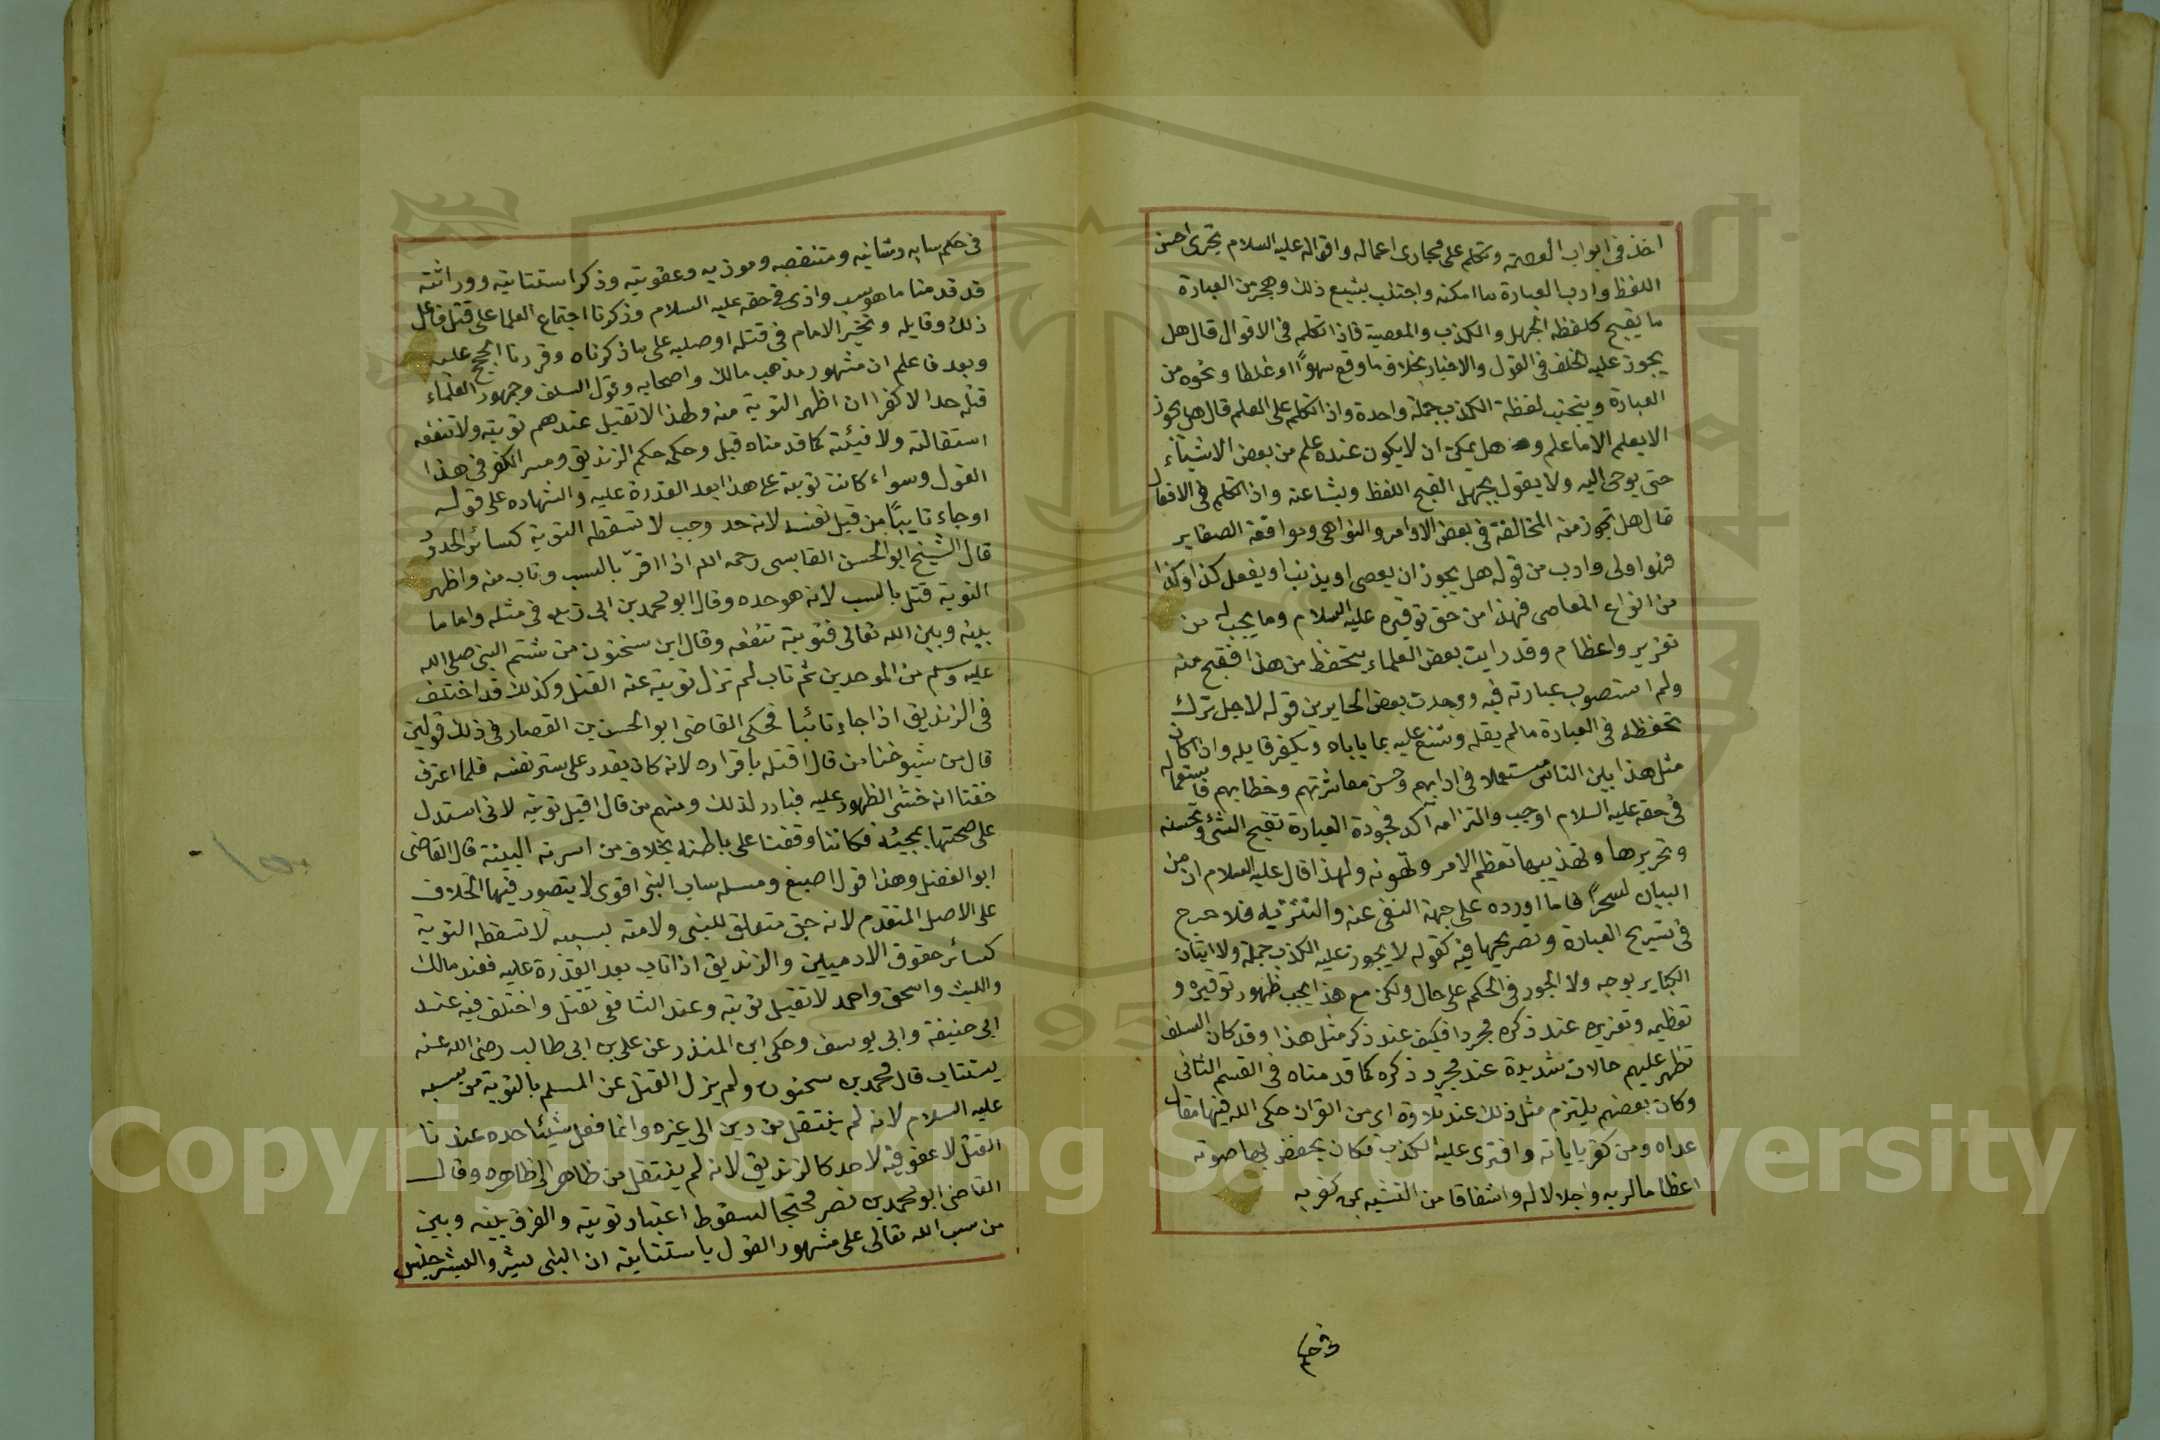 اخذ فى ابواب العصمة وتكلم على مجارى اعماله واقواله عليه السلام يتحرى احسن
اللفظ وادب العبارة ما امكنه واجتنب بشيع ذلك وهجر من العبارة
ما يقبح كلفظة الجهل والكذب والمعصية فاذا تكلم فى الاقوال قال هل
يجوز عليه الخلف فى القول والاخبار بخلاف ما وقع سهوًا او غلطا ونحوه من
العبارة ويتجنب لفظة الكذب جملة واحدة واذا تكلم على العلم قال هل يجوز
الا يعلم الا ما علم وهل يمكن ان لا يكون عنده علم من بعض الاشياء
حتى يوحى اليه ولا يقول يجهل لقبح اللفظ وبشاعته واذا تكلم فى الافعال
قال هل تجوز منه المخالفة فى بعض الاوامر والنواهى ومواقعة الصغاير
فهو اولى وادب من قوله هل يجوز ان يعصى او يذنب او يفعل كذا وكذا
من انواع المعاصى فهذا من حق توقيره عليه السلام وما يجب له من
تعزير واعظام وقد رايت بعض العلماء يتحفظ من هذا فقبح منه
ولم استصوب عبارته فيه ووجدت بعض الجايرين قوله لاجل ترك
تحفظه فى العبارة ما لم يقله وشنع عليه بما ياباه ويكفر قايله واذا كان
مثل هذا بين الناس مستعملا فى ادابهم وحسن معاشرتهم وخطابهم فاستعماله
فى حقه عليه السلام اوجب والتزامه آكد فجودة العبارة تقبح الشئ وتحسنه
وتحريرها وتهذيبها تعظم الامر وتهونه ولهذا قال عليه السلام ان من
البيان لسحرًا فاما اورده على جهة النفى عنه والتنزيه فلا حرج
فى تسريح العبارة وتصريحها فيه كقوله لا يجوز عليه الكذب جملة ولا اتيان
الكباير بوجه ولا الجور فى الحكم على حال ولكن مع هذا يجب ظهور توقيره و
تعظيمه وتعزيره عند ذكره مجردا فكيف عند ذكر مثل هذا وقد كان السلف
تظهر عليهم حالات شديدة عند مجرد ذكره كما قدمناه فى القسم الثانى
وكان بعضهم يلتزم مثل ذلك عند تلاوة اى من القران حكى الله فيها مقال
عداه ومن كفر باياته وافترى عليه الكذب فكان يخفض بها صوته
اعظاما لربه واجلالا له واشفاقا من التشبه بمن كفر به
فى حكم
فى حكم سابه وشانئه ومتنقصه وموذيه وعقوبته وذكر استتابته ووراثته
قد قدمنا ما هو سب واذى فى حقه عليه السلام وذكرنا اجتماع العلما على قتل فاعل
ذلك وقايله وتخير الامام فى قتله او صلبه على ما ذكرناه وقررنا الحجج عليه
وبعد فاعلم ان مشهور مذهب مالك واصحابه وقول السلف وجمهور العلماء
قتله حدا لا كفرا ان اظهر التوبة منه ولهذا لا تقبل عندهم توبته ولا تنفعه
استقالته ولا فيئته كما قدمناه قبل وحكمه حكم الزنديق ومسر الكفر فى هذا
القول وسواء كانت توبته على هذا بعد القدرة عليه والشهاده على قوله
او جاء تايبًا من قبل نفسه لانه حد وجب لا تسقطه التوبة كسائر الحدود
قال الشيخ ابو الحسن القابسى رحمه الله اذا اقرّ بالسب وتاب منه واظهر
التوبة قتل بالسب لانه هو حده وقال ابو محمد بن ابى زيد فى مثله واما ما
بينه وبين الله تعالى فتوبته تنفعه وقال ابن سحنون من شتم النبى صلى الله
عليه وسلم من الموحدين ثم تاب لم تزل توبته عنه القتل وكذلك قد اختلف
فى الزنديق اذا جاء تائبا فحكى القاضى ابو الحسن بن القصار فى ذلك قولين
قال من شيوخنا من قال اقتله باقراره لانه كان يقدر على ستر نفسه فلما اعترف
خفنا انه خشى الظهور عليه فبادر لذلك ومنهم من قال اقبل توبته لانى استدل
على صحتها بمجيئه فكاننا وقفنا على باطنه بخلاف من اسرته البينة قال القاضى
ابو الفضل وهذا قول اصبغ ومسله ساب النبى اقوى لا يتصور فيها الخلاف
على الاصل المتقدم لانه حق متعلق للنبى ولامته بسببه لا تسقطه التوبة
كسائر حقوق الادميين والزنديق اذا تاب بعد القدرة عليه فعند مالك
والليث واسحق واحمد لا تقبل توبته وعند الشافعى تقبل واختلف فيه عند
ابى حنيفة وابى يوسف وحكى ابن المنذر عن على بن ابى طالب رضى الله عنه
يستتاب قال محمد بن سحنون ولم يزل القتل عن المسلم بالتوبة من سبه
عليه السلام لانه لم ينتقل من دين الى غيره وانما فعل شيئا حده عندنا
القتل لا عفو فيه لاحد كالزنديق لانه لم ينتقل من ظاهر الى ظاهر وقال
القاضى ابو محمد بن نصر محتجا لسقوط اعتبار توبته والفرق بينه وبين
من سب الله تعالى على مشهور القول باستتابته ان النبى بشر والبشر جنس
Copyright © King Saud University